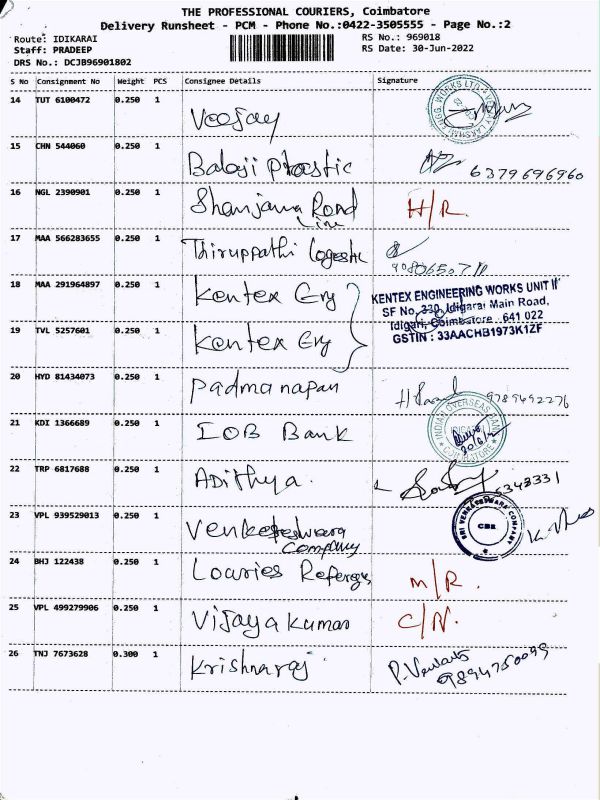 THE PROFESSIONAL COURIERS, Coimbatore
Delivery Runsheet - PCM - Phone No.:0422-3505555 - Page No.:2
Route: IDIKARAI
RS No.: 969018
Staff: PRADEEP
RS Date: 30-Jun-2022
DRS No.: DCJB96901802
S No Consignment No Weight PCS Consignee Details Signature
14 TUT 6100472 0.250 1 Veejay
15 CHN 544060 0.250 1 Balaji Plastic 6379696960
16 NGL 2390901 0.250 1 Shanjana Road H/R.
Line
17 MAA 566283655 0.250 1 Thiruppathi Logestic
18 MAA 291964897 0.250 1 Kentex Eng
KENTEX ENGINEERING WORKS UNIT II
SF No. 330, Idigarai Main Road,
Idigari, Coimbatore - 641 022
GSTIN : 33AACHB1973K1ZF
19 TVL 5257601 0.250 1 Kentex Eng
20 HYD 81434073 0.250 1 Padmanapan 9789492276
21 KDI 1366689 0.250 1 IOB Bank
INDIAN OVERSEAS BANK
COIMBATORE
22 TRP 6817688 0.250 1 Adithya.
23 VPL 939529013 0.250 1 Venkateswara
Company
SRI VENKATESWARA COMPANY
CBE
24 BHJ 122438 0.250 1 M/R.
25 VPL 499279906 0.250 1 Vijayakumar C/N.
26 TNJ 7673628 0.300 1 Krishnaraj